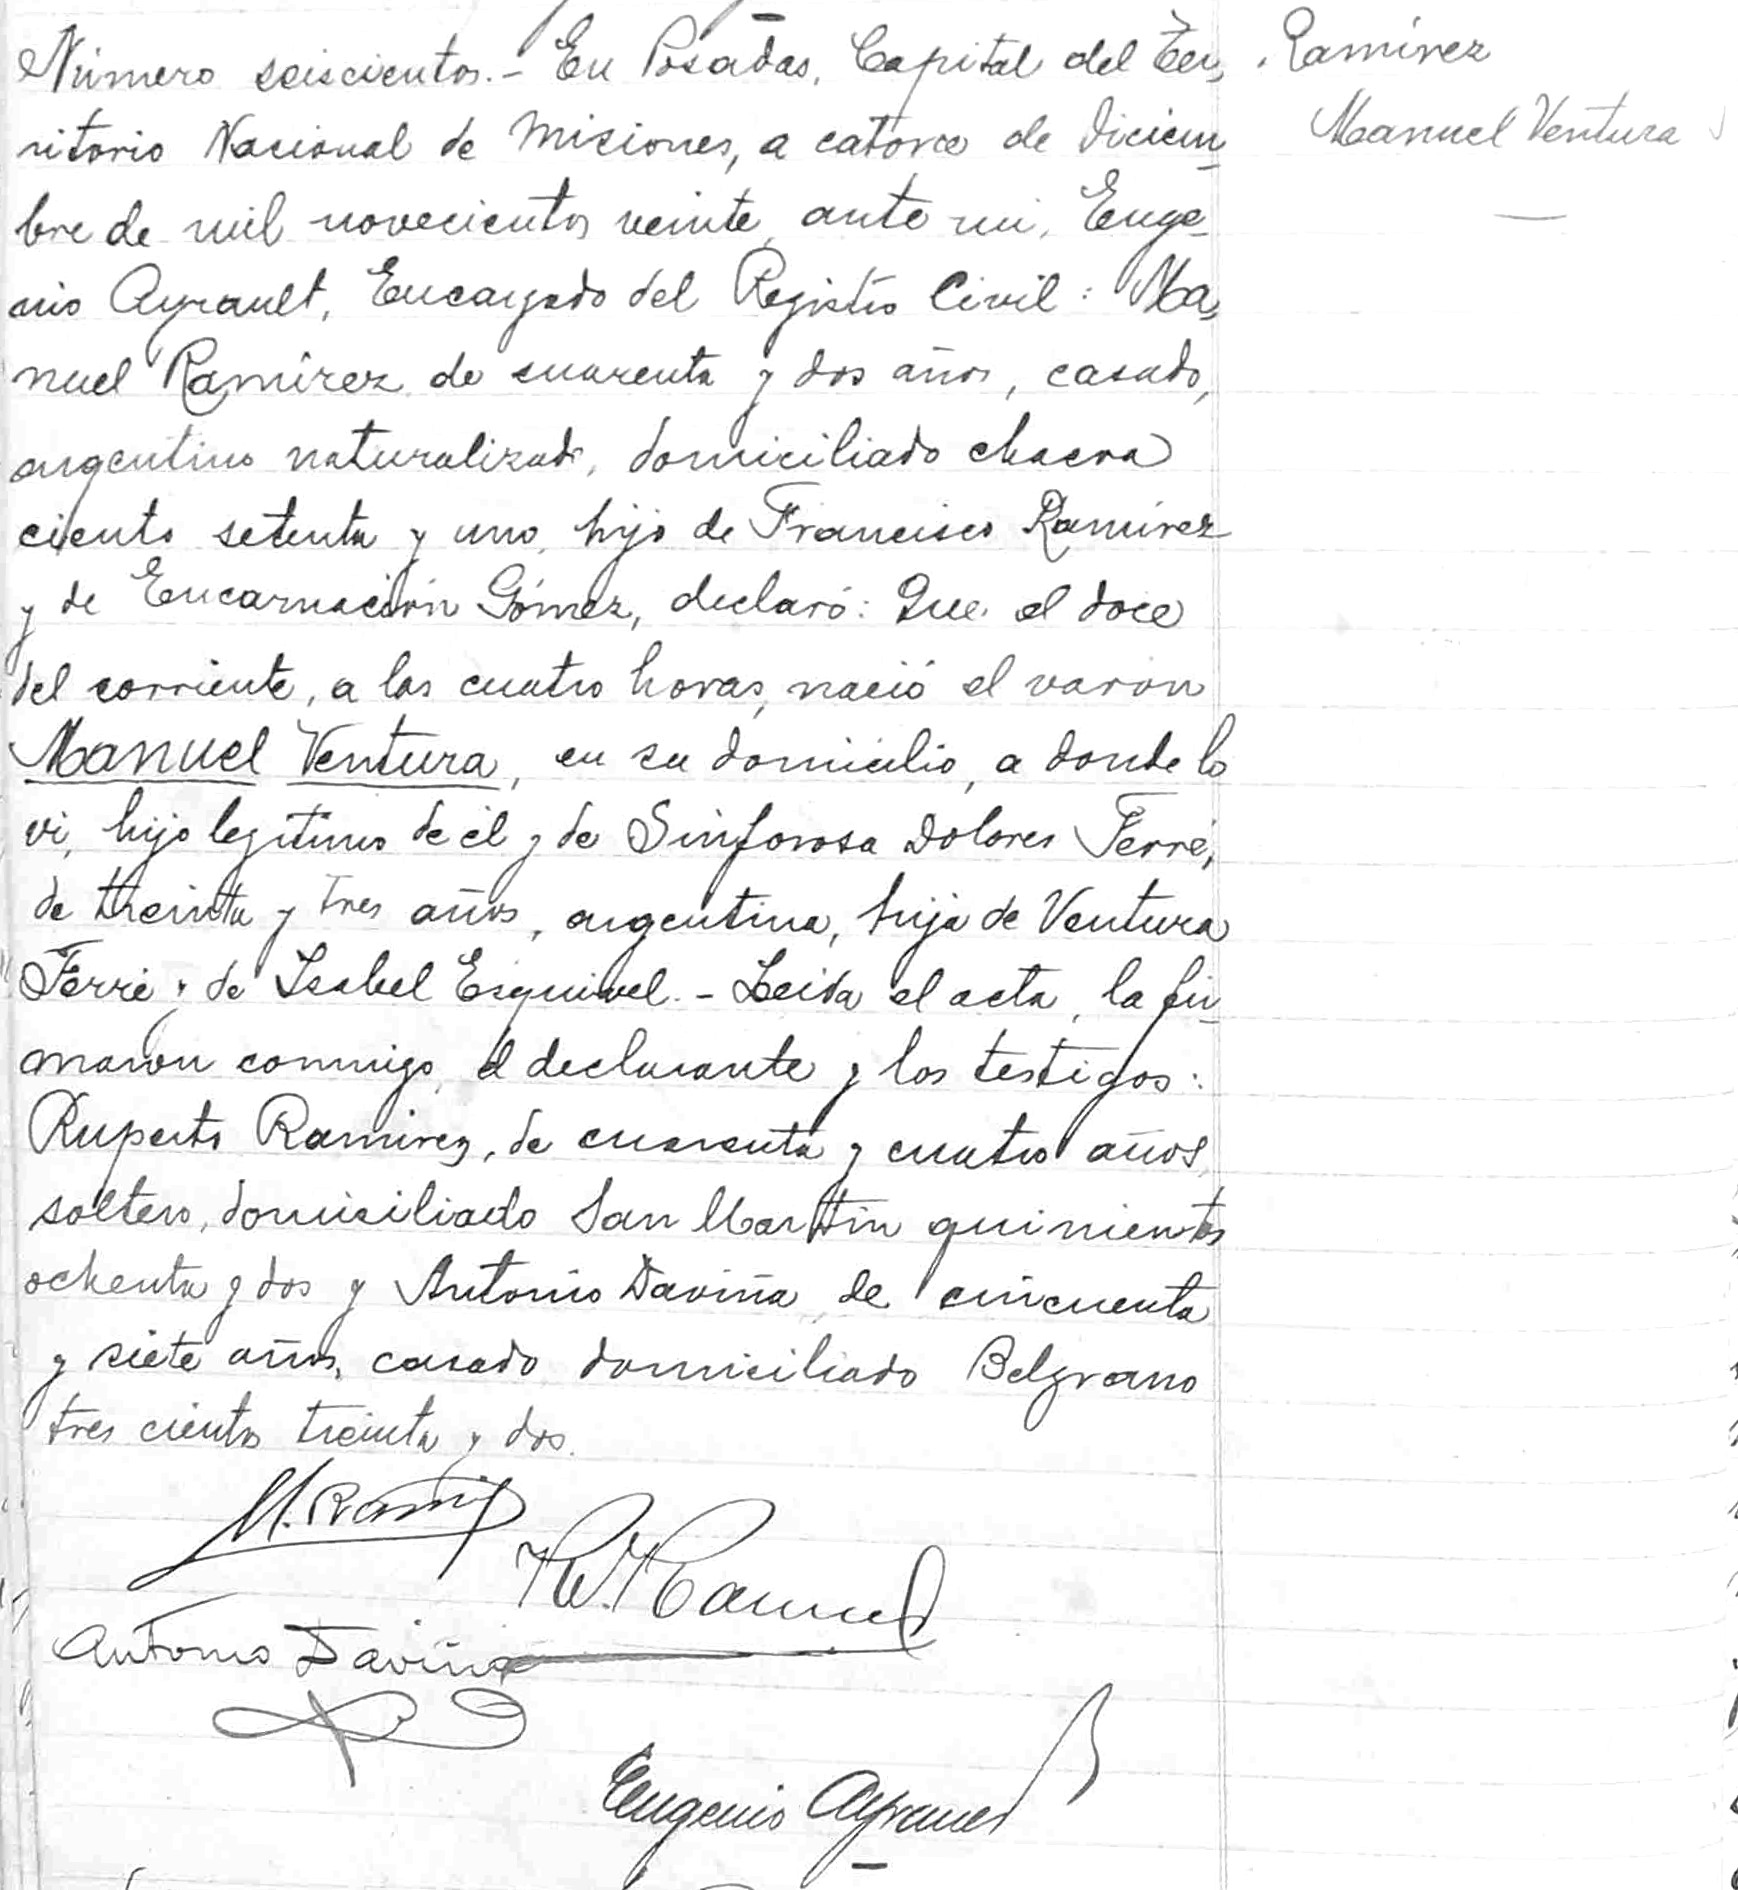 Número seiscientos.- En Posadas, Capital del Ter-
ritorio Nacional de Misiones, a catorce de Diciem-
bre de mil novecientos veinte, ante mi, Euge-
nio Ayrault, Encargado del Registro Civil: Ma-
nuel Ramírez de cuarenta y dos años, casado,
argentino naturalizado, domiciliado chacra
ciento setenta y uno, hijo de Francisco Ramírez
y de Encarnación Gómez, declaró: Que el doce
del corriente, a las cuatro horas, nació el varon
Manuel Ventura, en su domicilio, a donde lo
vi, hijo legítimo de él y de Sinforosa Dolores Ferré,
de treinta y tres años, argentina, hija de Ventura
Ferré y de Isabel Esquivel.- Leída el acta, la fir-
maron conmigo, el declarante y los testigos:
Ruperto Ramírez, de cuarenta y cuatro años,
soltero, domiciliado San Martín quinientos
ochenta y dos y Antonio Daviña, de cincuenta
y siete años, casado domiciliado Belgrano
tres cientos treinta y dos.
M. Ramí
R. Ramírez
Antonio Daviña
Eugenio Ayrault
Ramírez
Manuel Ventura